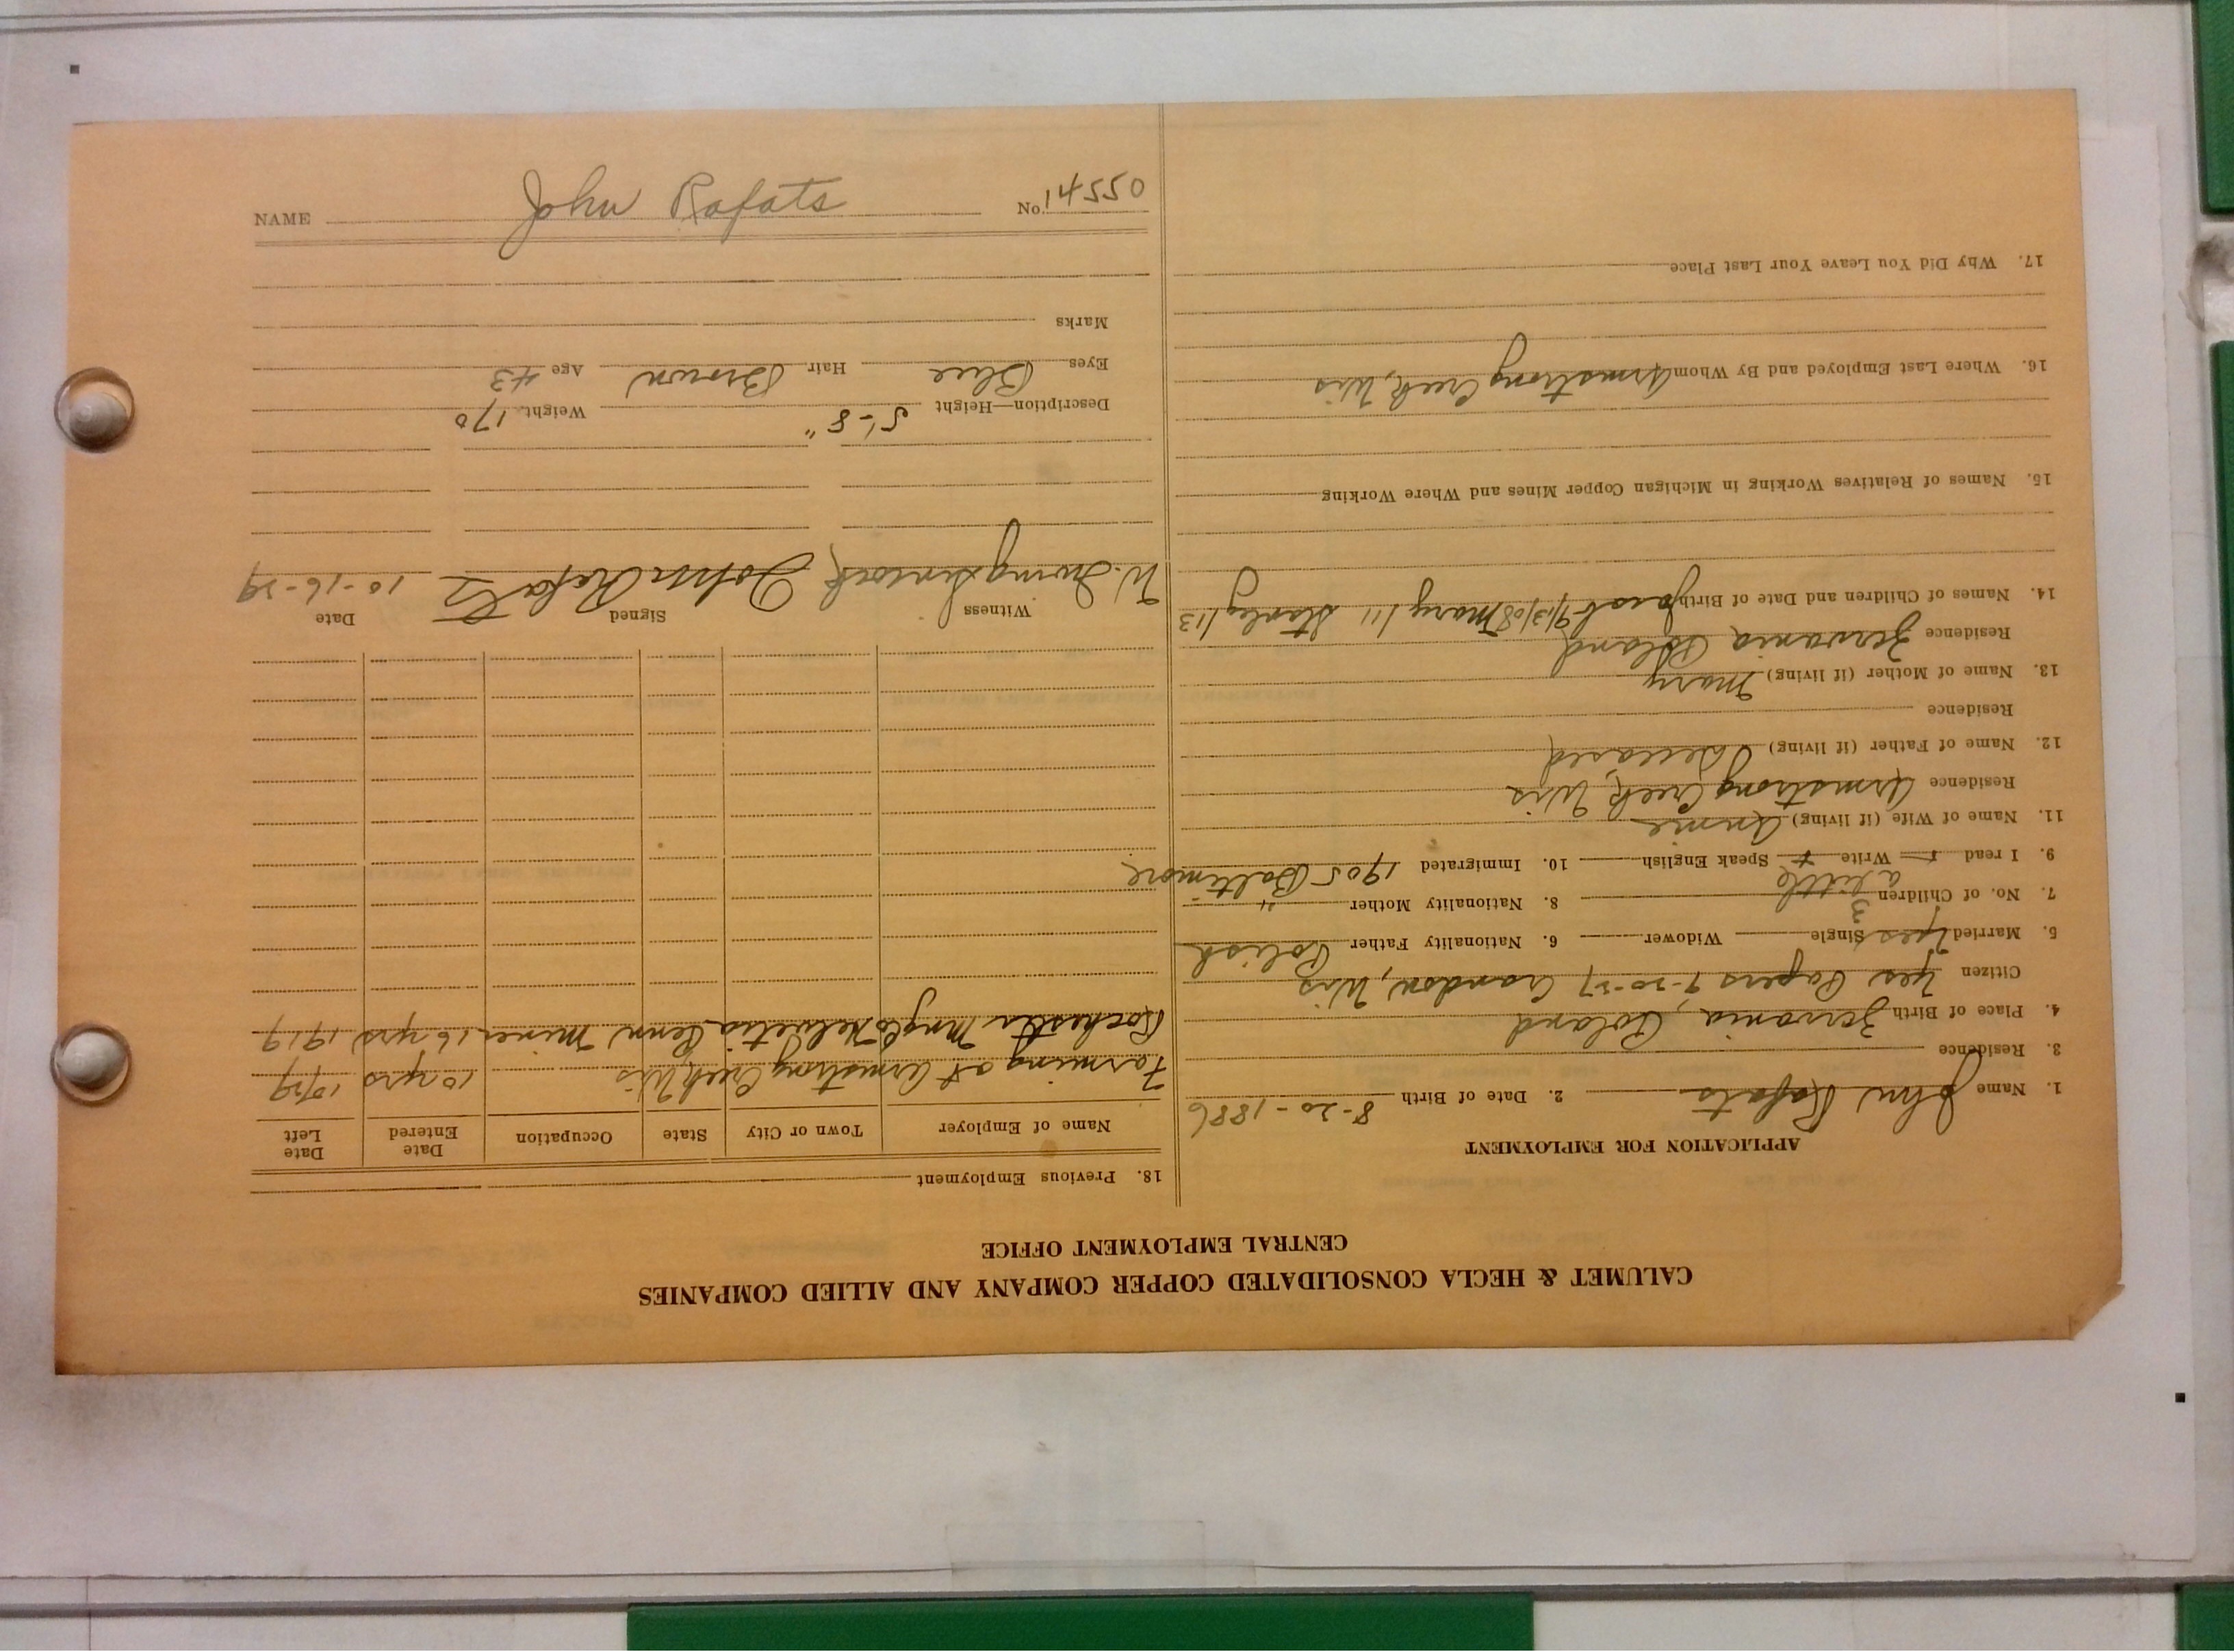 CALUMET & HECLA CONSOLIDATED COPPER COMPANY AND ALLIED COMPANIES
CENTRAL EMPLOYMENT OFFICE
APPLICATION FOR EMPLOYMENT
1. Name John Rafats 2. Date of Birth 8-20-1886
3. Residence
4. Place of Birth Zervania, Poland
Citizen Yes Papers 9-20-27 Crandon, Wis
5. Married Yes Single Widower 6. Nationality Father Polish
7. No. of Children 3 8. Nationality Mother "
a little
9. I read Write Speak English 10. Immigrated 1905 Baltimore
11. Name of Wife (if living) Annie
Residence Armstrong Creek, Wis
12. Name of Father (if living) Deceased
Residence
13. Name of Mother (if living) Mary
Residence Zervania Poland
14. Names of Children and Date of Birth Jacob 9/13/08 Mary /11 Stanley /13
15. Names of Relatives Working in Michigan Copper Mines and Where Working
16. Where Last Employed and By Whom Armstrong Creek, Wis
17. Why Did You Leave Your Last Place
18. Previous Employment
Name of Employer Town or City State Occupation Date Entered Date Left
Farming at Armstrong Creek, Wis 10 yrs 10/29
Rochester Mng Co Helvetia Penn Miner 16 yrs 1919
Witness Signed Date
W. Irving John Rafats 10-16-29
Description—Height 5'-8" Weight 170
Eyes Blue Hair Brown Age 43
Marks
NAME John Rafats No. 14550